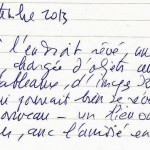 tembre 2013
l'endroit rêvé, un
chargée d'objets au
tableaux, d'images
qui pourrait bien se
un lieu où
, avec l'amitié en